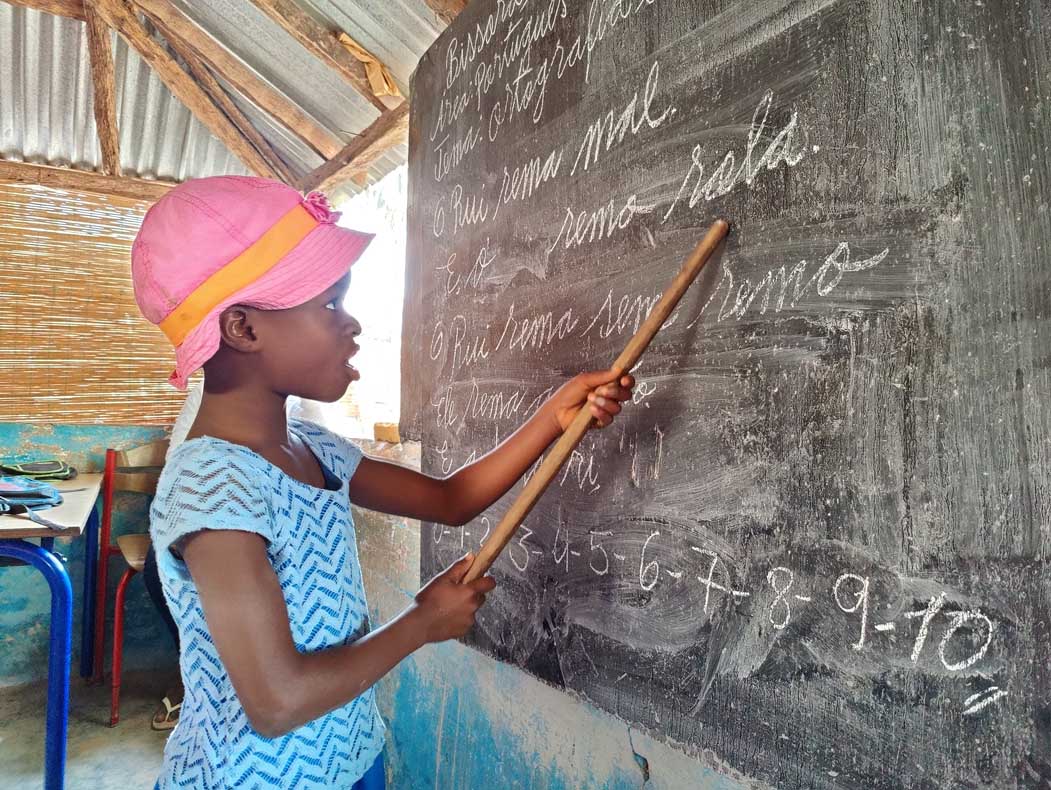 Bissorã
Área: Português
Tema: ortografia
O Rui rema mal.
E o remo rala.
O Rui rema sem remo
Ele rema
E a
0-1-2-3-4-5-6-7-8-9-10